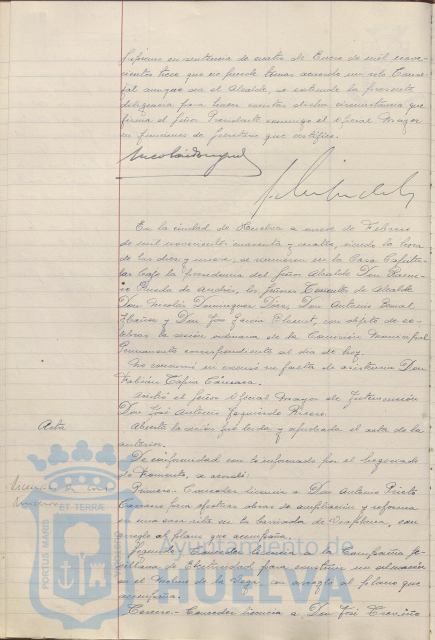 Supremo en sentencia de cuatro de Enero de mil nove-
cientos trece que no puede tomar acuerdo un solo Conce-
jal aunque sea el Alcalde, se extiende la presente
diligencia para hacer constar dicha circunstancia que
firma el señor Presidente conmigo el Oficial Mayor
en funciones de Secretario que certifico.
En la ciudad de Huelva a once de Febrero
de mil novecientos cuarenta y cuatro, siendo la hora
de las diez y nueve, se reunieron en la Casa Capitu-
lar bajo la presidencia del Señor Alcalde Don
Rueda de Andrés, los Señores Tenientes de Alcalde
Don Nicolás Dominguez Diez, Don Antonio
Ibañez y Don José García con objeto de ce-
lebrar la sesión ordinaria de la Comisión Municipal
Permanente correspondiente al día de hoy.
No concurrió ni excusó su falta de asistencia Don
Fabián Tapia Cámara.
Asistió el Señor Oficial Mayor de Intervención
Don José Antonio Izquierdo
Acta
Abierta la sesión fué leída y aprobada el acta de la
anterior.
De conformidad con lo informado por el Negociado
de Fomento, se acordó:
Licencia
Primero: Conceder licencia a Don Antonio Prieto
para efectuar obras de ampliación y reforma
en una casa sita en la barriada de con
arreglo al plano que acompaña.
Segundo: Conceder licencia a la Compañía Se-
villana de Electricidad para construir un almacén
en el Molino de la Vega, con arreglo al plano que
acompaña.
Tercero.- Conceder licencia a Don José
PORTUS MARIS ET TERRAE
Ayuntamiento de
HUELVA